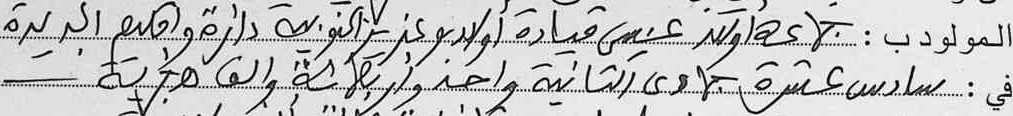 المولود ب: جماعة أولاد عيسى قيادة أولاد بوعزيز الجنوبية دائرة واقليم الجديدة
في: سادس عشرة جمادى الثانية واحد وأربعمائة والف هجرية